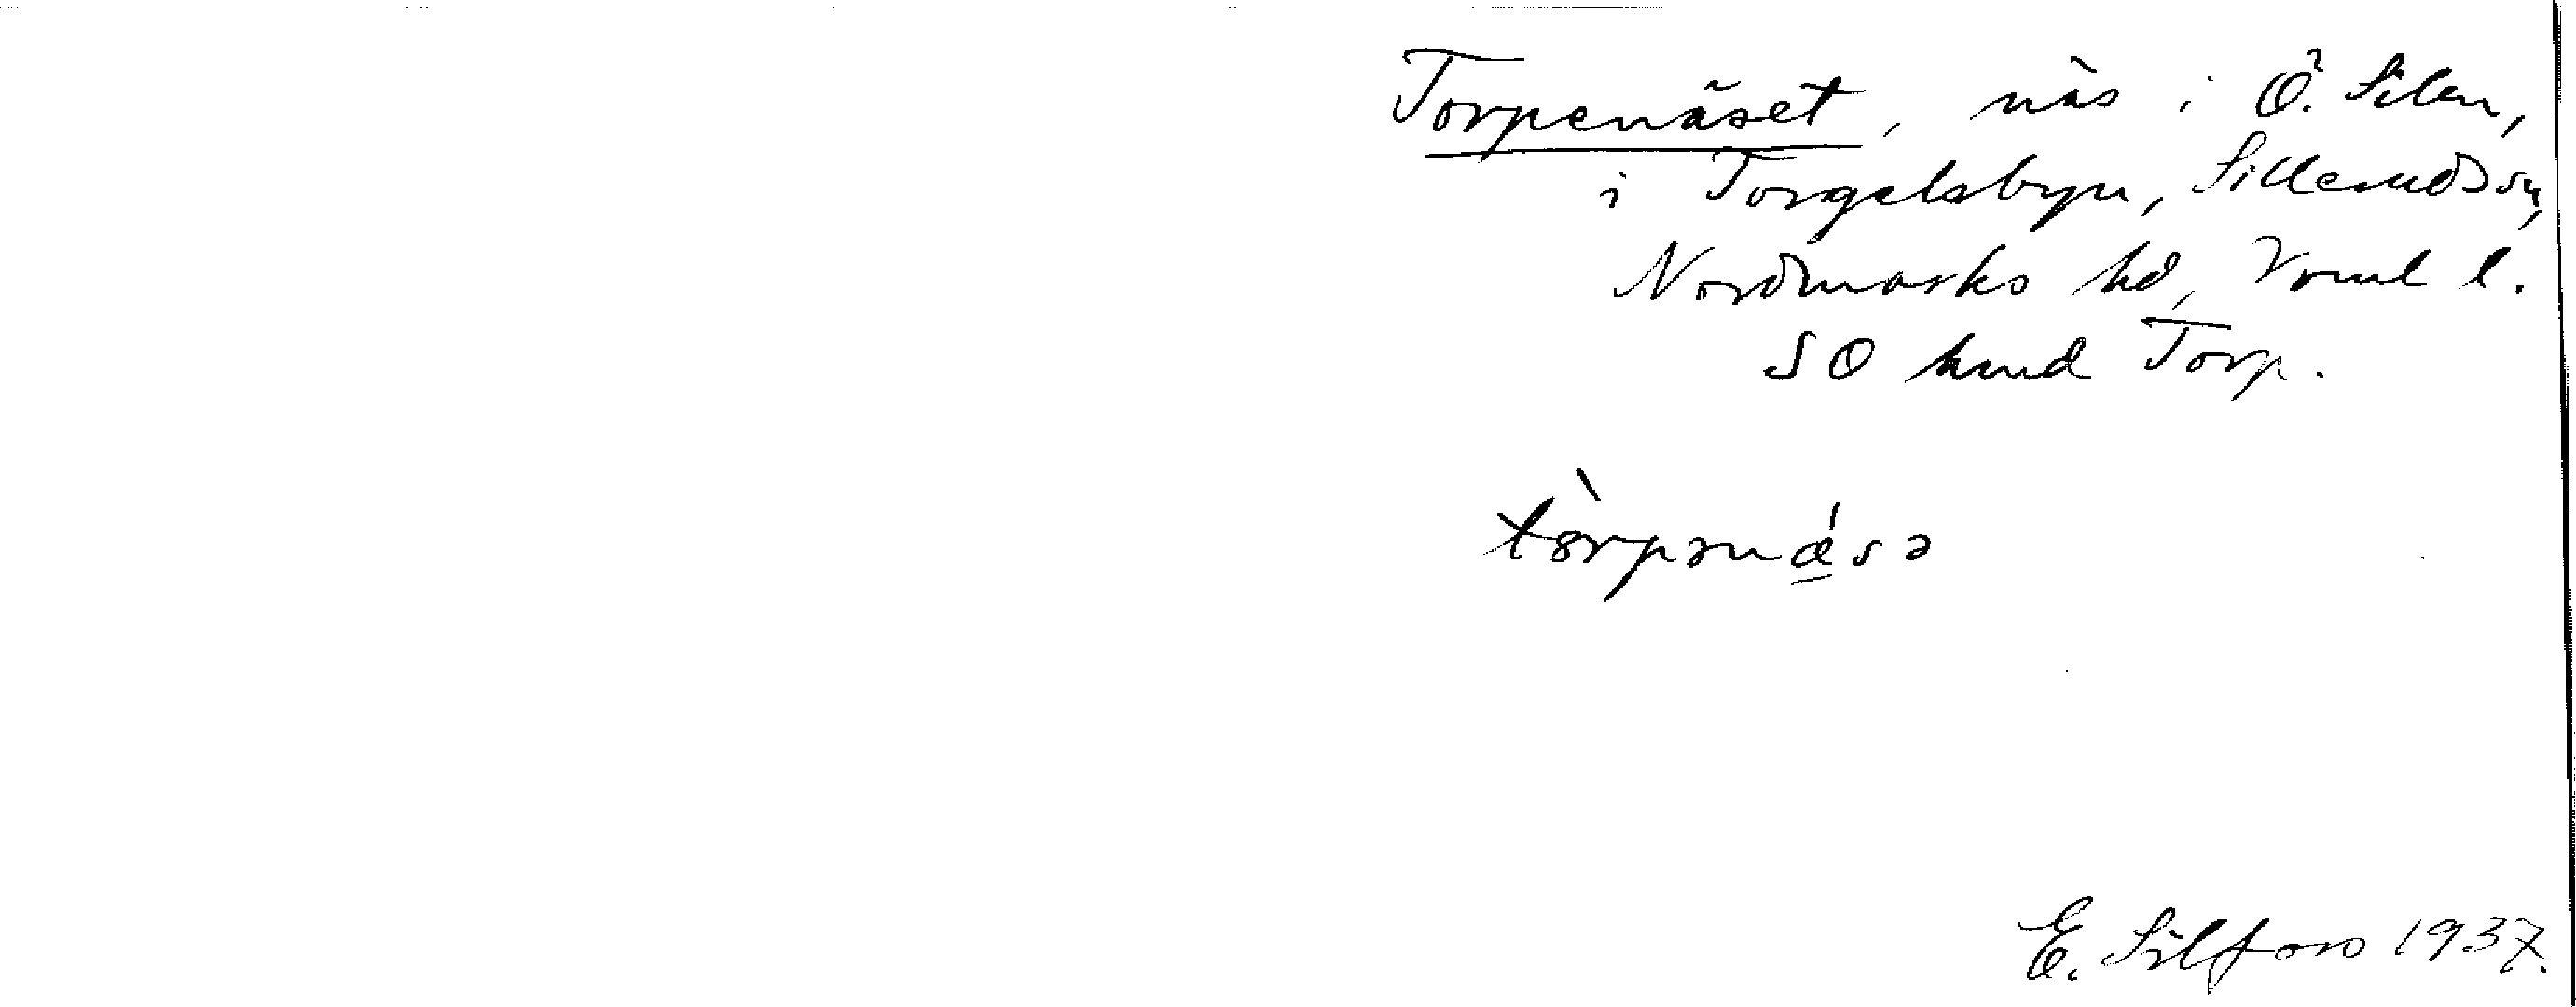 Torpenäset, näs i Ö. Silen,
i Torgelsbyn, Sillerud sn,
Nordmarks hd, Vrml l.
SO kand Torp.
tòrpənǽsə
E. Silfors 1937.